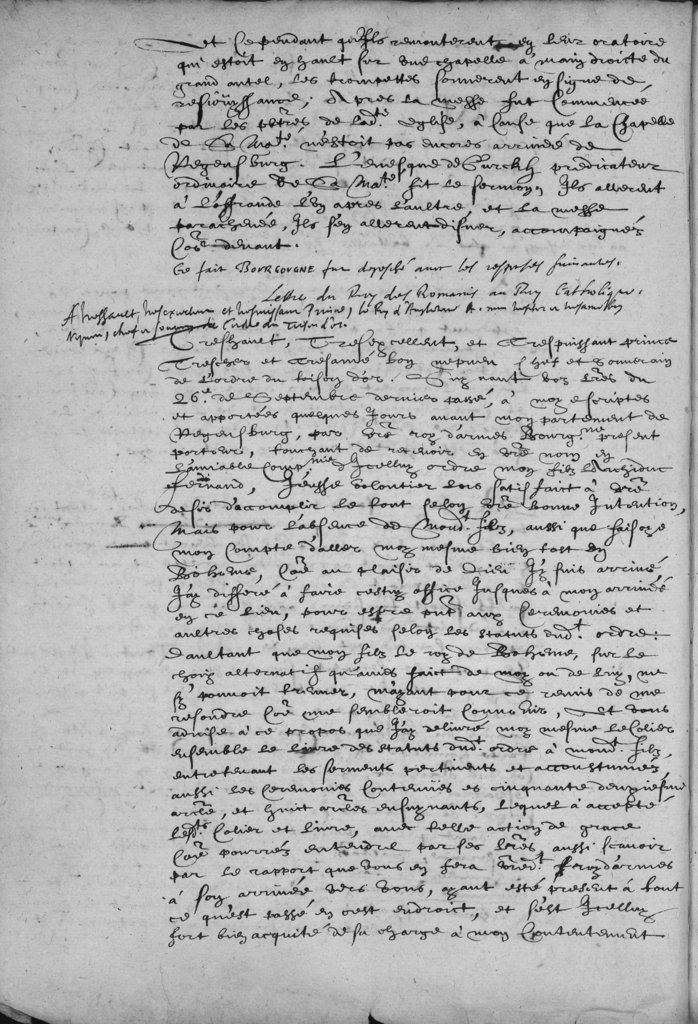 Et cependant qu'ilz remonterent en leur oratoire
qui estoit en hault sur une chapelle à main droicte du
grand autel, les trompettes sonnerent en signe de
resiouissance; Apres la messe fut commencée
par les pbrēs de ladte eglise, à cause que la Chapelle
de Sa Mate n'estoit pas encores arrivée de
Regensburg. L'evesque de Gurckh predicateur
ordinaire de Sa Mate fit le sermon, Ilz allerent
à l'offrande l'un apres l'aultre et la messe
parachevée, Ilz s'en allerent disner, accompaignez
Coē devant.
Ce fait BOURGOUGNE fut depesché avec les responses suivantes.
Lettre du Roy des Romains au Roy Catholique.
A treshault, tresexcellent et trespuissant Prince, le Roy d'Angleterre &.
chef et souverain de l'ordre du Toison d'or.
Treshault, Tresexcellent, et Trespuissant prince
Trescher et Tresamé bon nepveu Chef et souverain
de l'ordre du toison d'or. Suyvant voz lrēs du
26e de Septembre dernier passé, à moy escriptes
et apportées quelques Jours avant mon partement de
Regensburg, par vrē roy d'armes Bourgne present
porteur, touchant de recevoir en vrē nom en
l'amiable compnie d'Icelluy ordre mon filz l'archiduc
Fernand, J'eusse volontier lors satisfait à vrē
desir d'accomplir le tout selon vrē bonne Intention,
Mais pour l'absence de mondt filz, aussi que faisoye
mon compte d'aller moy mesme bien tost en
Boheme, Coē au plaisir de Dieu Jy suis arrivé
J'ay differé à faire cestuy office Jusques à mon arrivée
en ce lieu, pour estre pnt aux Ceremonies et
aultres choses requises selon les statuts dudt ordre:
Daultant que mon filz le roy de Boheme, sur le
choix alternatif qu'aviés faict de moy ou de luy, ne
s'y pouvoit trouver, m'ayant pour ce remis de me
resoudre Coē me sembleroit convenir, Et vous
advise à ce propos que J'ay delivré moy mesme le Colier
ensemble le livre des statuts dudt ordre à mondt filz,
entretenant les serments pertinents et accoustumez
aussi les Ceremonies contenues es cinquante deuxiesme
arclē, et huit arclēs ensuyvants, lequel a accepté
lesdts Colier et livre, avec telle action de grace
Coē pourrés entendre par ses lrēs, aussi scavoir
par le rapport que vous en fera vrēdt roy d'armes
à son arrivée vers vous, ayant esté present à tout
ce qu'est passé en cest endroict, et s'est Icelluy
fort bien acquité de sa charge à mon Contentement